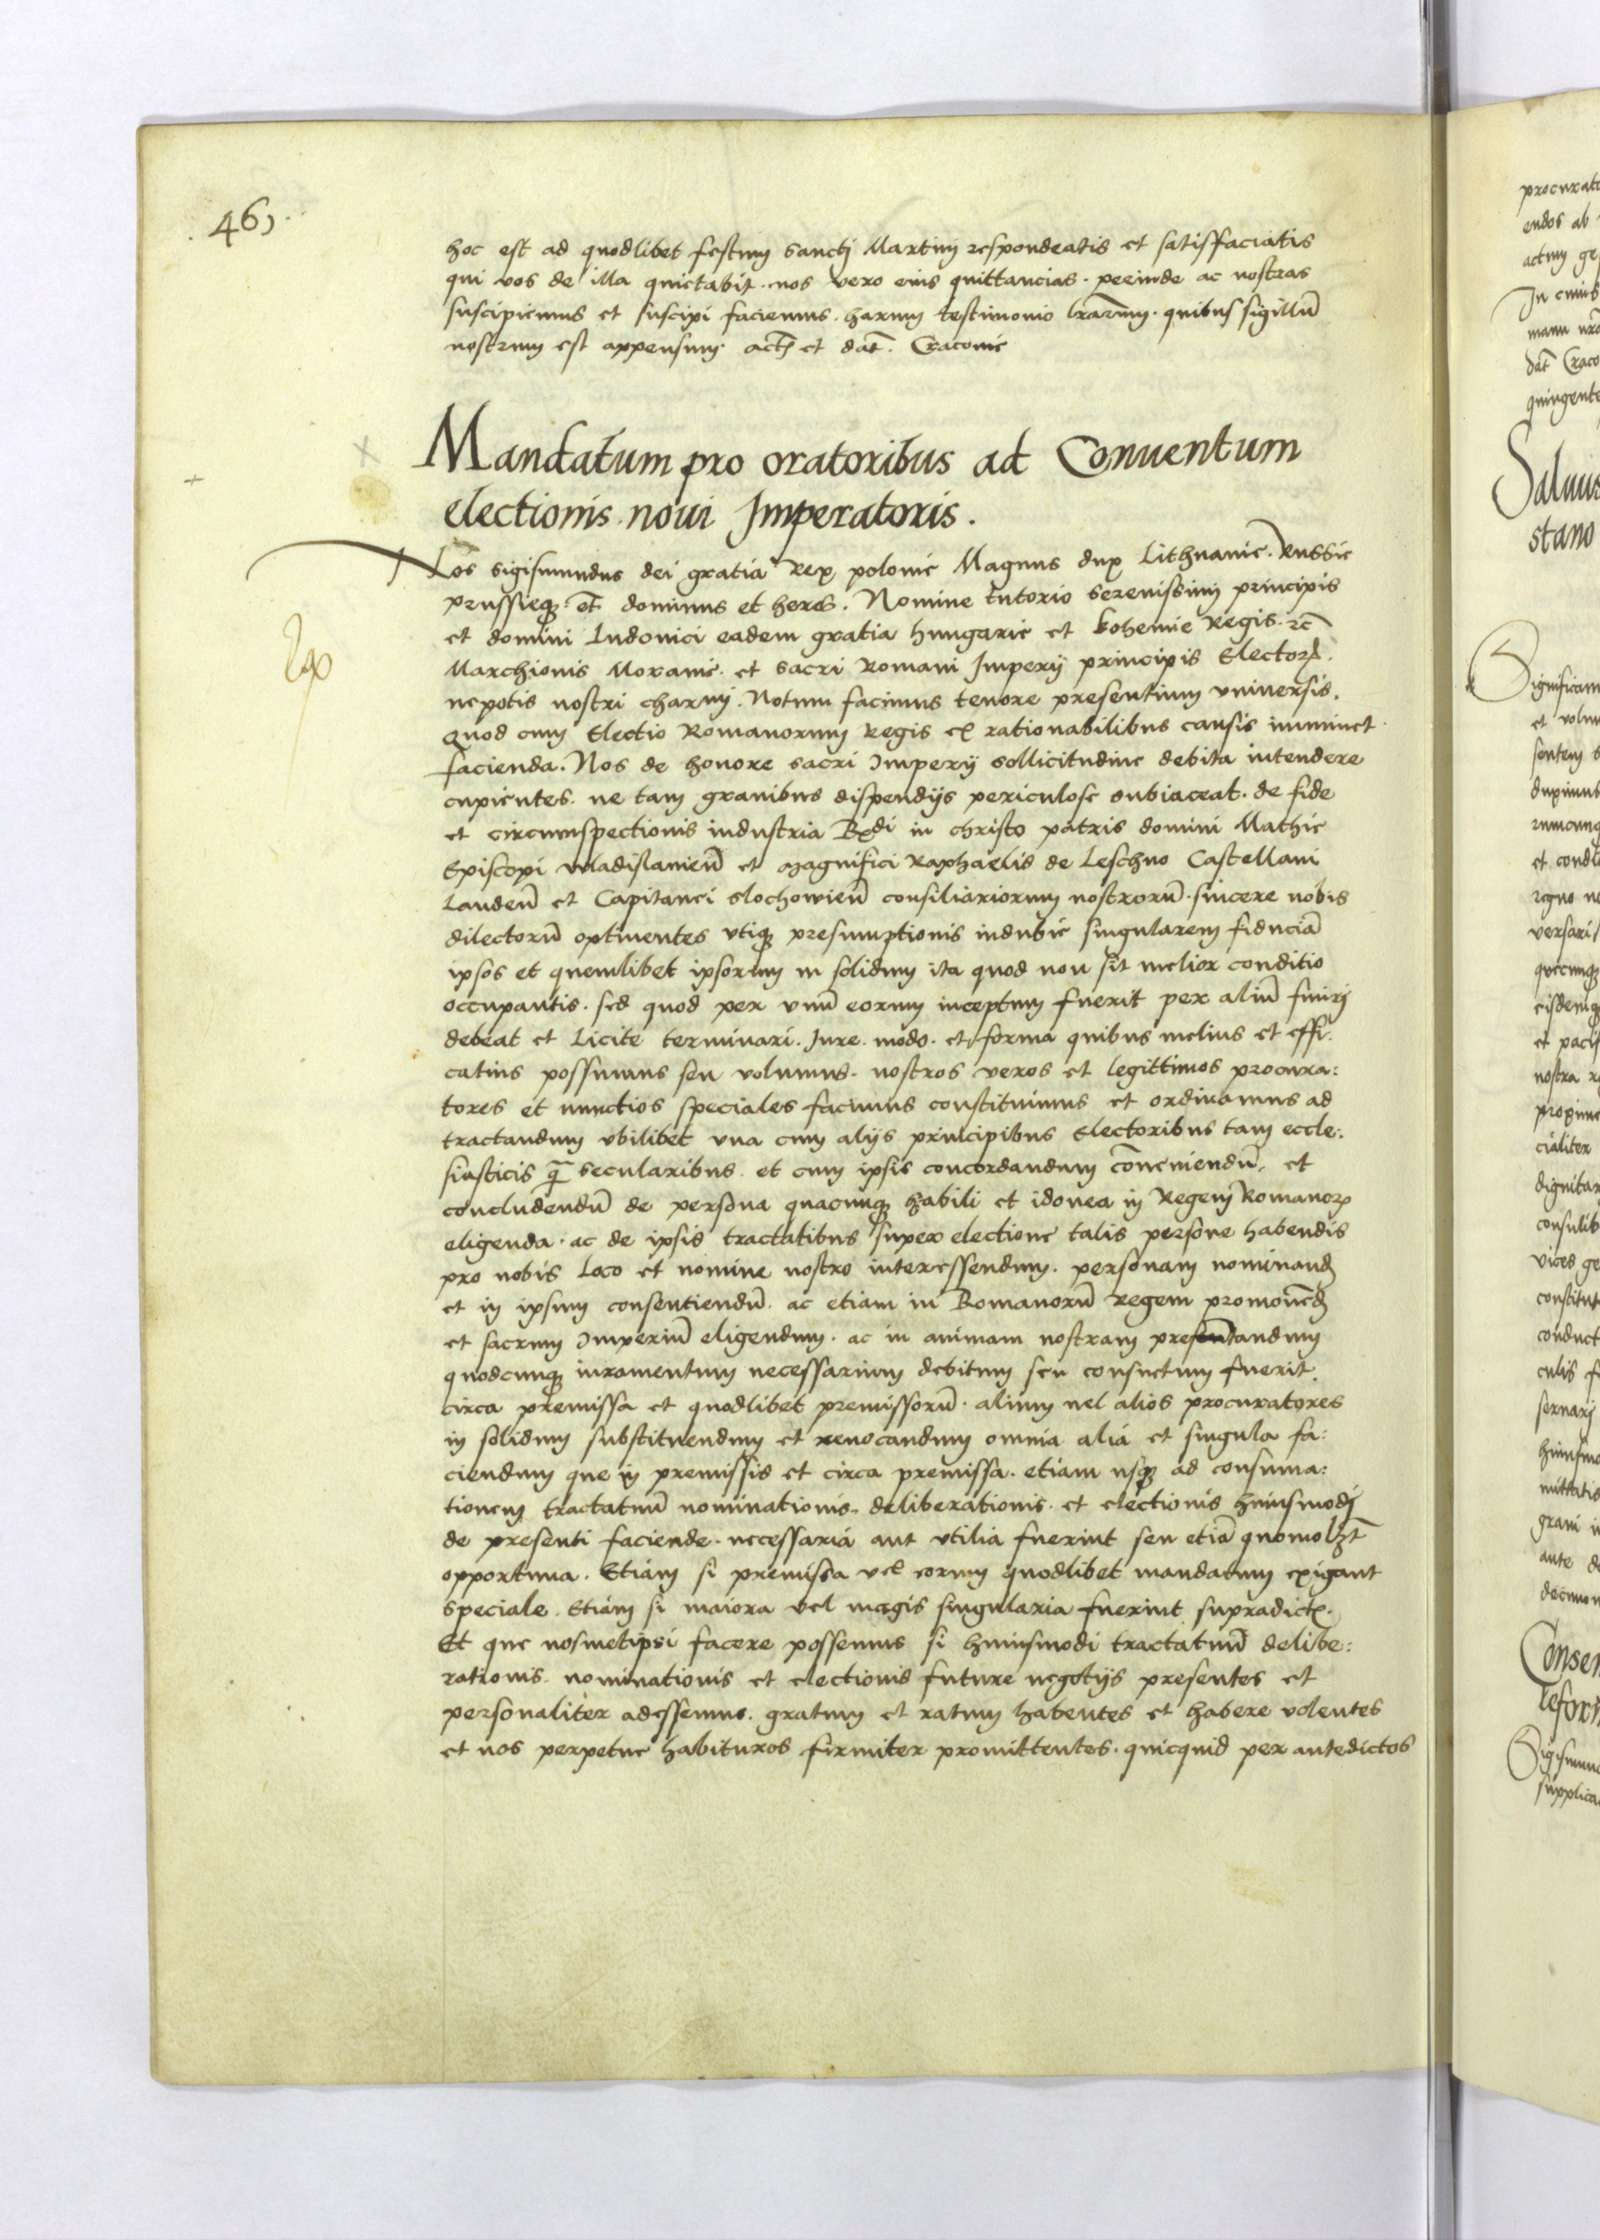 461.
hoc est ad quodlibet festum sancti Martini respondeatis et satisfaciatis
qui vos de illa quietabit. nos vero eius quittancias. perinde ac nostras
suscipiemus et suscipi faciemus. harum testimonio lrarum. quibus sigillū
nostrum est appensum. act et dat. Cracovie
Mandatum pro oratoribus ad Conuentum
electionis noui Imperatoris.
Nos Sigismundus dei gratia Rex polonie Magnus dux Lithuanie. Russie
prussieqz etc dominus et heres. Nomine tutorio serenissimi principis
et domini Ludouici eadem gratia hungarie et bohemie Regis. etc
Marchionis Morauie. et sacri Romani Imperij principis Elector.
nepotis nostri charmi. Notum facimus tenore presentium vniuersis.
Quod cum Electio Romanorum Regis ex rationabilibus causis immineat
facienda. Nos de honore sacri Imperij sollicitudine debita intendere
cupientes. ne tam grauibus dispendijs periculose subiaceat. de fide
et circumspectionis industria Rdi in christo patris domini Mathie
Episcopi wladislauień et Magnifici Raphaelis de Leschno Castellani
Landeń et Capitanei slochowień consiliariorum nostrorū. sincere nobis
dilectorū optinentes vtiqz presumptionis indubie singularem fiduciā
ipsos et quemlibet ipsorum in solidum ita quod non sit melior conditio
occupantis. sed quod per vnū eorum inceptum fuerit per aliū finirj
debeat et Licite terminari. Jure. modo. et forma quibus melius et effi:
catius possumus seu volumus. nostros veros et legittimos procura:
tores et nunctios speciales facimus constituimus et ordinamus ad
tractandum vbilibet vna cum alijs principibus Electoribus tam eccle:
siasticis q̄ secularibus. et cum ipsis concordandum cōueniendū. et
concludendū de persona quacunqz habili et idonea in Regem Romanor
eligenda. ac de ipsis tractatibus super electione talis persone habendis
pro nobis Loco et nomine nostro interessendum. personam nominand
et in ipsum consentiendū. ac etiam in Romanorū regem promouēd
et sacrum Imperiū eligendum. ac in animam nostram presentandum
quodcunqz iuramentum necessarium debitum seu consuetum fuerit.
circa premissa et quodlibet premissorū. alium uel alios procuratores
in solidum substituendum et reuocandum omnia alia et singula fa:
ciendum que in premissis et circa premissa. etiam usqz ad consuma:
tionem tractatuū nominationis. deliberationis. et electionis huiusmodj
de presenti faciende. necessaria aut vtilia fuerint seu etiā quomolzt
opportuna. Etiam si premissa vel eorum quodlibet mandatum exigant
speciale. Etiam si maiora vel magis singularia fuerint supradict.
Et que nosmetipsi facere possemus si huiusmodi tractatuū delibe:
rationis. nominationis et electionis future negotijs presentes et
personaliter adessemus. gratum et ratum habentes et habere volentes
et nos perpetue habituros firmiter promittentes. quicquid per antedictos